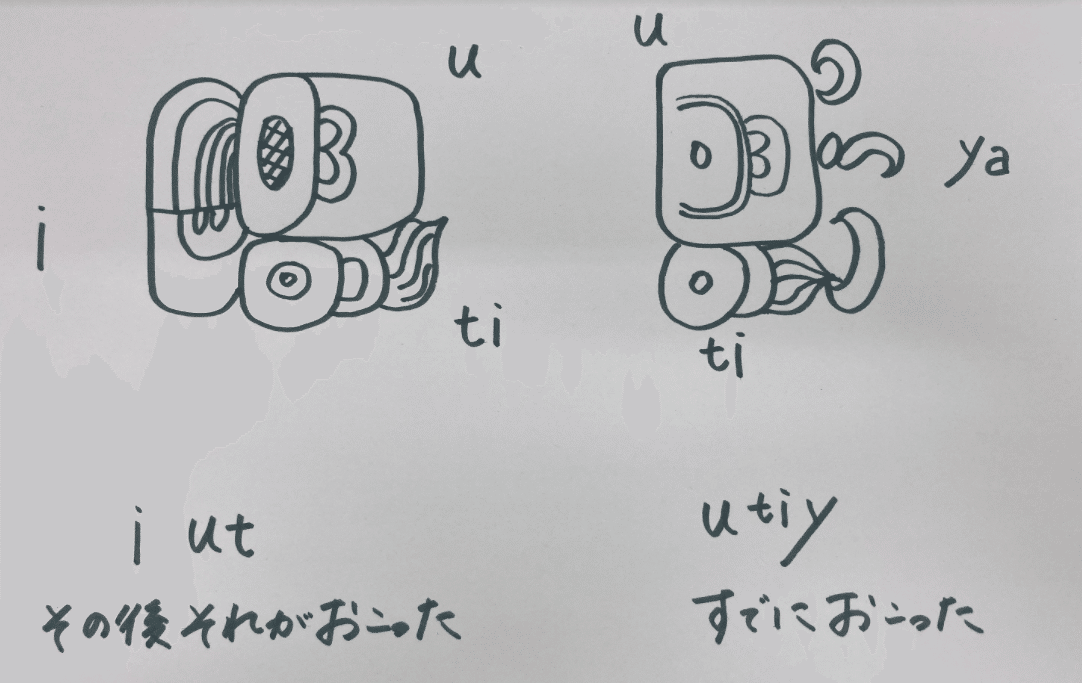 u
i
ti
u
ya
ti
i ut
その後それがおこった
utiy
すでにおこった